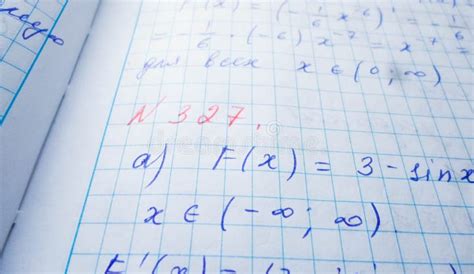 F'(x) = (-1/6 x^-6)' = -1/
= -1/6 · (-6) x^-7 = x^-7 =
для всех x ∈ (0; ∞)
N 327.
а) F(x) = 3 - sin x
x ∈ (-∞; ∞).
F'(x) = (3